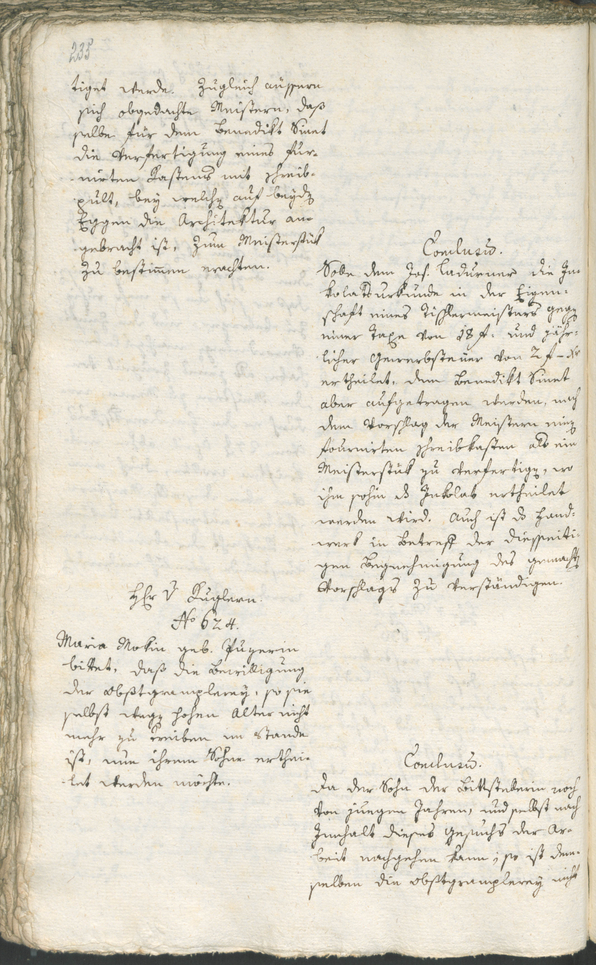 235
tiget werde. Zugleich äussern
sich obgedachte Meistern, daß
selbe für dem Benedikt Sinet
die Verfertigung eines fur-
nirten Kastens mit schreib-
pult, bey welchen auf beyden
Eggen die Architektur an-
gebracht ist, zum Meisterstük
zu bestimmen erachten.
Conclusum.
Sobe dem Jos. Ladurner die In-
kolatsurkunde in der Eigen-
schaft eines Tischlermeisters gegen
einer Taxe von 18 f. und jähr-
licher Gewerbsteuer von 2 f
ertheilet, dem Benedikt Sinet
aber aufgetragen werden, nach
dem Vorschlag der Meistern einen
fournirten schreibkasten als ein
Meisterstük zu verfertigen, wo
ihm sohin das Inkolat ertheilet
werden wird. Auch ist das Hand-
werk in Betreff der diesseiti-
gen Begnehmigung des gemachten
Vorschlags zu verständigen.
Hr v Kuglern.
No 624.
Maria Mokin geb. Pugerin
bittet, daß die Bewilligung
der obstgramplerey, so sie
selbst wegen hohen Alter nicht
mehr zu treiben im Stande
ist, nun ihrem Sohne erthei-
let werden möchte.
Conclusum.
Da der Sohn der Bittstellerin noch
von jungen Jahren, und selbst nach
Innhalt dieses Gesuchs der Ar-
beit nachgehen kann; so ist dem-
selben die obstgramplerey nicht